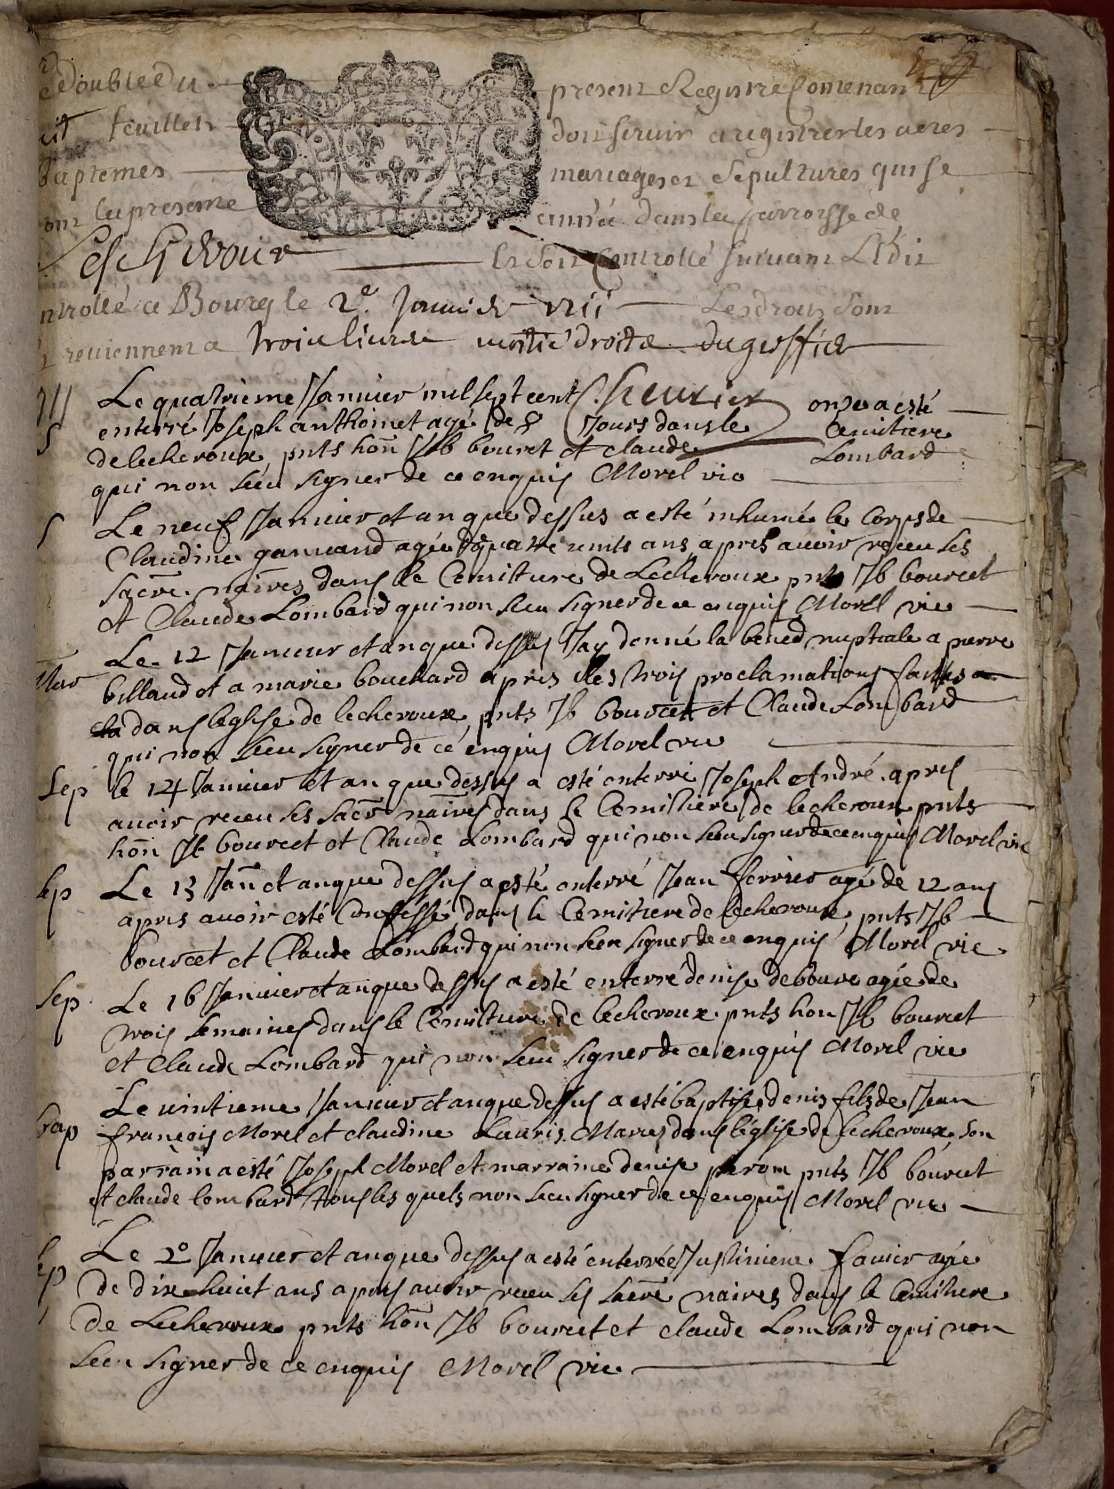 double du present Registre Contenant
feuillets doit servir a registrer les actes
baptemes mariages et Sepultures qui se
la presente année dans la parroisse de
Lescheroux Et soit Controllé suivant LEdit
ntrollé a Bourg le 2e. Janvier 1711 Les droits sont
reviennent a trois livres moitié droits du greffier
1711 Le quatrieme Janvier mil sept cent Cheurier onze a esté
S enterré Joseph anthoinet agé de 8 Jours dans le Cemitiere
de lecheroux pnts hoñ Jb bouret et claude Lombard
qui non sceu signer de ce enquis Morel vic
S Le neuf Janvier et an que dessus a esté inhumé le Corps de
Claudine gannand agée de quatre vints ans apres avoir receu ses
sacre. naires dans le Cemitiere de Lecheroux pnts Jb bourcet
et Claude Lombard qui non sceu signer de ce enquis Morel vic
Mar Le 12 Janvier et an que dessus Jay donné la bened nuptiale a pierre
billaud et a marie bouchard apres les trois proclamations faittes
dans leglise de lecheroux pnts Jb bourcet et Claude Lombard
qui non sceu signer de ce enquis Morel vic
Sep le 14 Janvier et an que dessus a esté enterré Joseph André apres
avoir receu ses sacre naires dans le Cemitiere de lecheroux pnts
hoñ Jb bourcet et Claude Lombard qui non sceu signer de ce enquis Morel vic
Sep Le 15 Jañ et an que dessus a esté enterré Jean ferrier agé de 12 ans
apres avoir esté Confessé dans le Cemitiere de lecheroux pnts Jb
bourcet et Claude Lombard qui non sceu signer de ce enquis Morel vic
Sep Le 16 Janvier et an que dessus a esté enterré denise debourg agée de
trois semaines dans le Cemitiere de lecheroux pnts hon Jb bourcet
et Claude Lombard qui non sceu signer de ce enquis Morel vic
bap Le vintieme Janvier et an que dessus a esté baptisé denis fils de Jean
françois Morel et claudine Lauris Mariez dans leglise de lecheroux son
parrain a esté Joseph Morel et marraine denise perom pnts Jb bourcet
et claude lombard tous les quels non sceu signer de ce enquis Morel vic
Sep Le 20 Janvier et an que dessus a esté enterrée Justiniene favier agée
de dixhuict ans apres avoir receu ses sacre naires dans le Cemitiere
de Lecheroux pnts hoñ Jb bourcet et claude Lombard qui non
sceu signer de ce enquis Morel vic